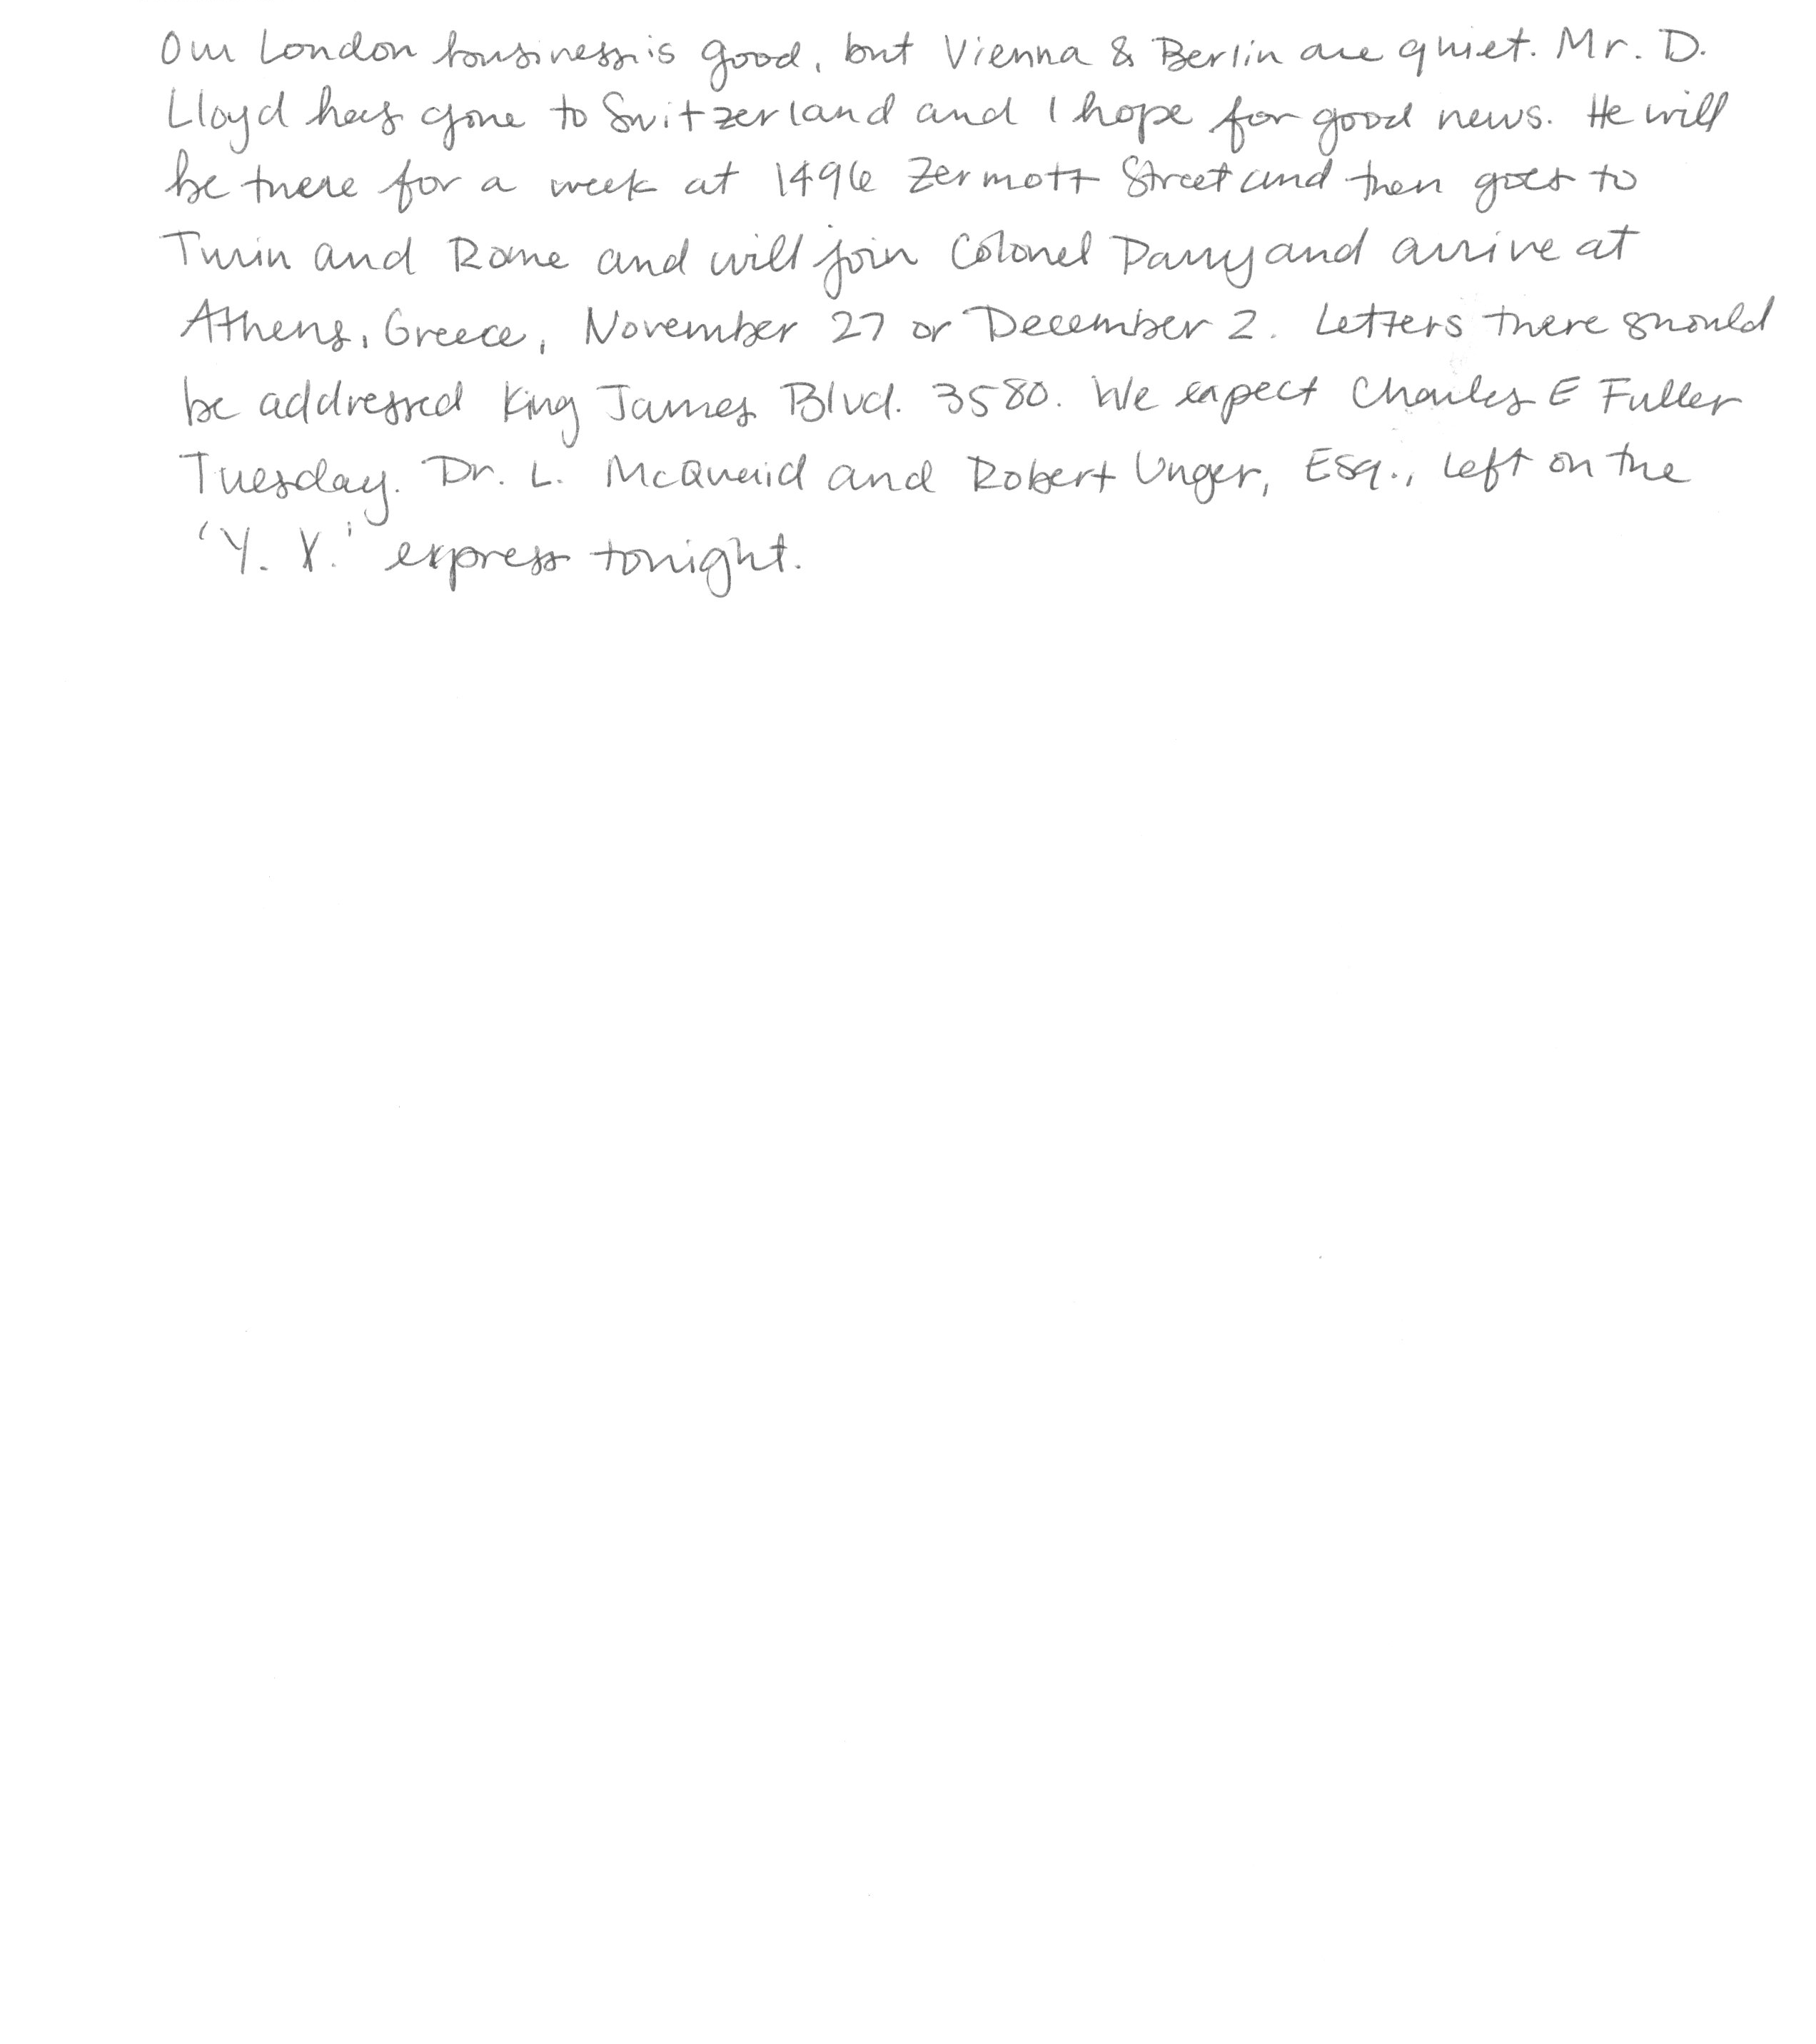 Our London business is good, but Vienna & Berlin are quiet. Mr. D.
Lloyd has gone to Switzerland and I hope for good news. He will
be there for a week at 1496 Zermott Street and then goes to
Turin and Rome and will join Colonel Parry and arrive at
Athens, Greece, November 27 or December 2. Letters there should
be addressed King James Blvd. 3580. We expect Charles E Fuller
Tuesday. Dr. L. McQuaid and Robert Unger, Esq., left on the
'Y. X.' express tonight.